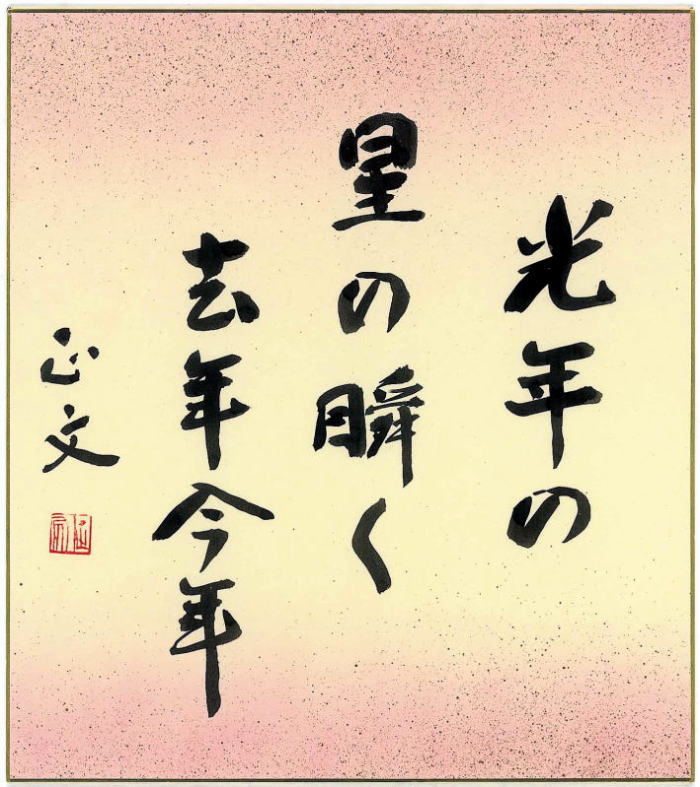 光年の
星の瞬く
去年今年
正文